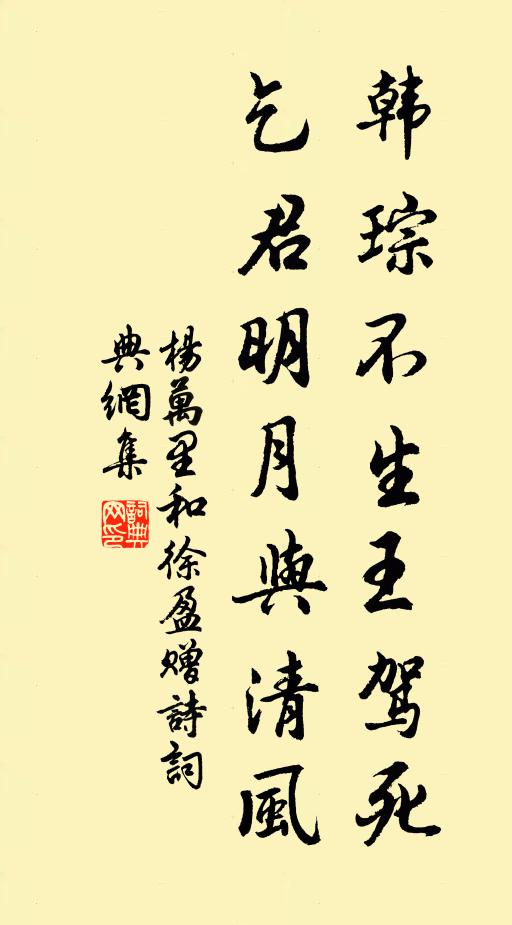 韩琮不生王驾死
乞君明月與清風
楊萬里和徐盈赠詩詞
典網集
詞典
网印